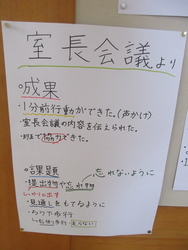 室長会議より
成果
・1分前行動ができた。(声かけ)
・室長会議の内容を伝えられた。
・班で協力できた。
課題
忘れないように
・提出物や忘れ物
・見通しをもてるように